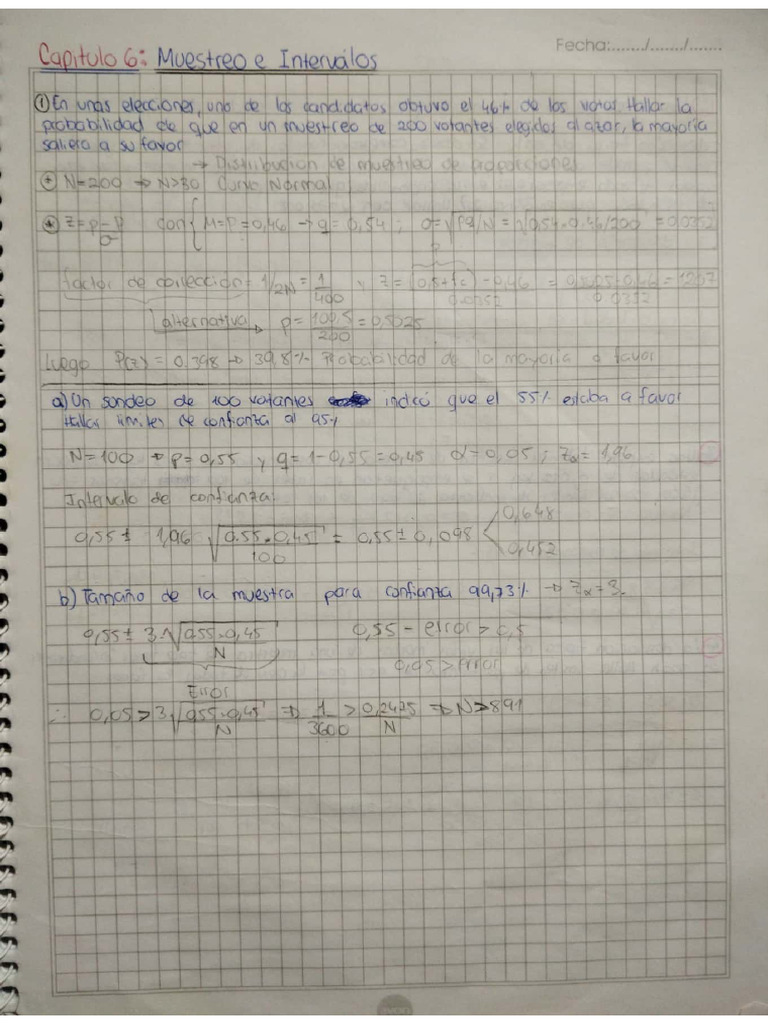 Fecha:....../......./.......
Capitulo 6: Muestreo e Intervalos
① En unas elecciones, uno de los candidatos obtuvo el 46% de los votos. Hallar la
probabilidad de que en un muestreo de 200 votantes elegidos al azar, la mayoría
saliera a su favor
→ Distribución de muestreo de proporciones
N=200 → N>30 Curva Normal
Z = p-P/σ con { M=P=0,46 → q=0,54 ; σ=√pq/N = √0,54·0,46/200 = 0,0352
factor de corrección = 1/2N = 1/400 y Z = (0,5+fc)-0,46/0.0352 = = 1207
alternativa → p = 100,5/200 = 0,5025
Luego P(z) = 0.398 → 39,8% Probabilidad de la mayoría a favor
a) Un sondeo de 100 votantes indicó que el 55% estaba a favor
Hallar límites de confianza al 95%
N=100 → p=0,55 y q=1-0,55=0,45 α=0,05 ; Zα=1,96
Intervalo de confianza:
0,55 ± 1,96 √0.55·0,45/100 = 0,55 ± 0,098 < 0,648 0,452
b) Tamaño de la muestra para confianza 99,73% → Zα=3
0,55 ± 3√0,55·0,45/N 0,55 - error > 0,5
0,05 > Error
Error
∴ 0,05 > 3√0,55·0,45/N ⇒ 1/3600 > 0,2475/N ⇒ N > 891